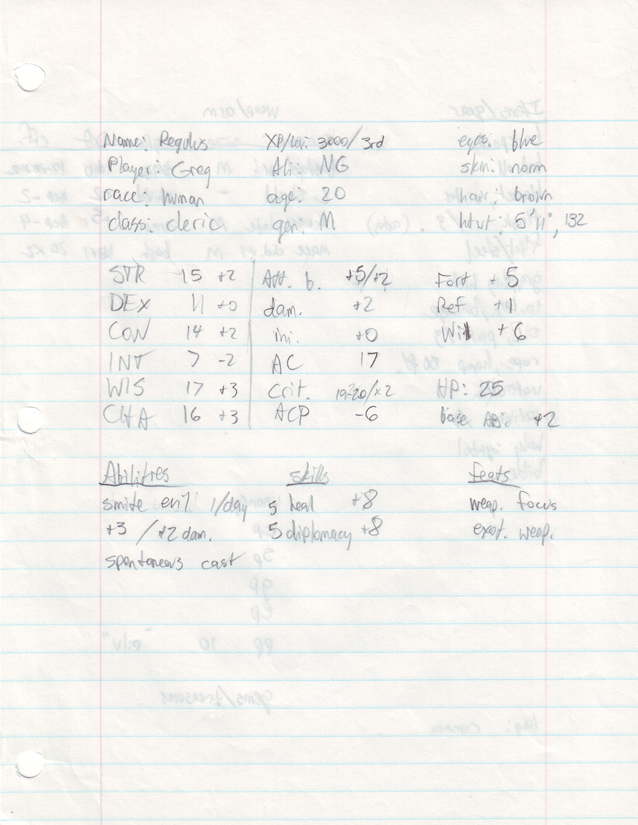 Name: Regulus XP/lev: 3000/3rd eyes: blue
Player: Greg Ali: NG skin: norm
race: human age: 20 hair: brown
class: cleric gen: M ht/wt: 5'11", 182
STR 15 +2 Att. b. +5/+2 Fort +5
DEX 11 +0 dam. +2 Ref +1
CON 14 +2 ini. +0 Will +6
INT 7 -2 AC 17
WIS 17 +3 Crit. 19-20/x2 HP: 25
CHA 16 +3 ACP -6 base AB: +2
Abilities skills feats
smite evil: 1/day 5 heal +8 weap. focus
+3 / +2 dam. 5 diplomacy +8 exot. weap.
spontaneous cast